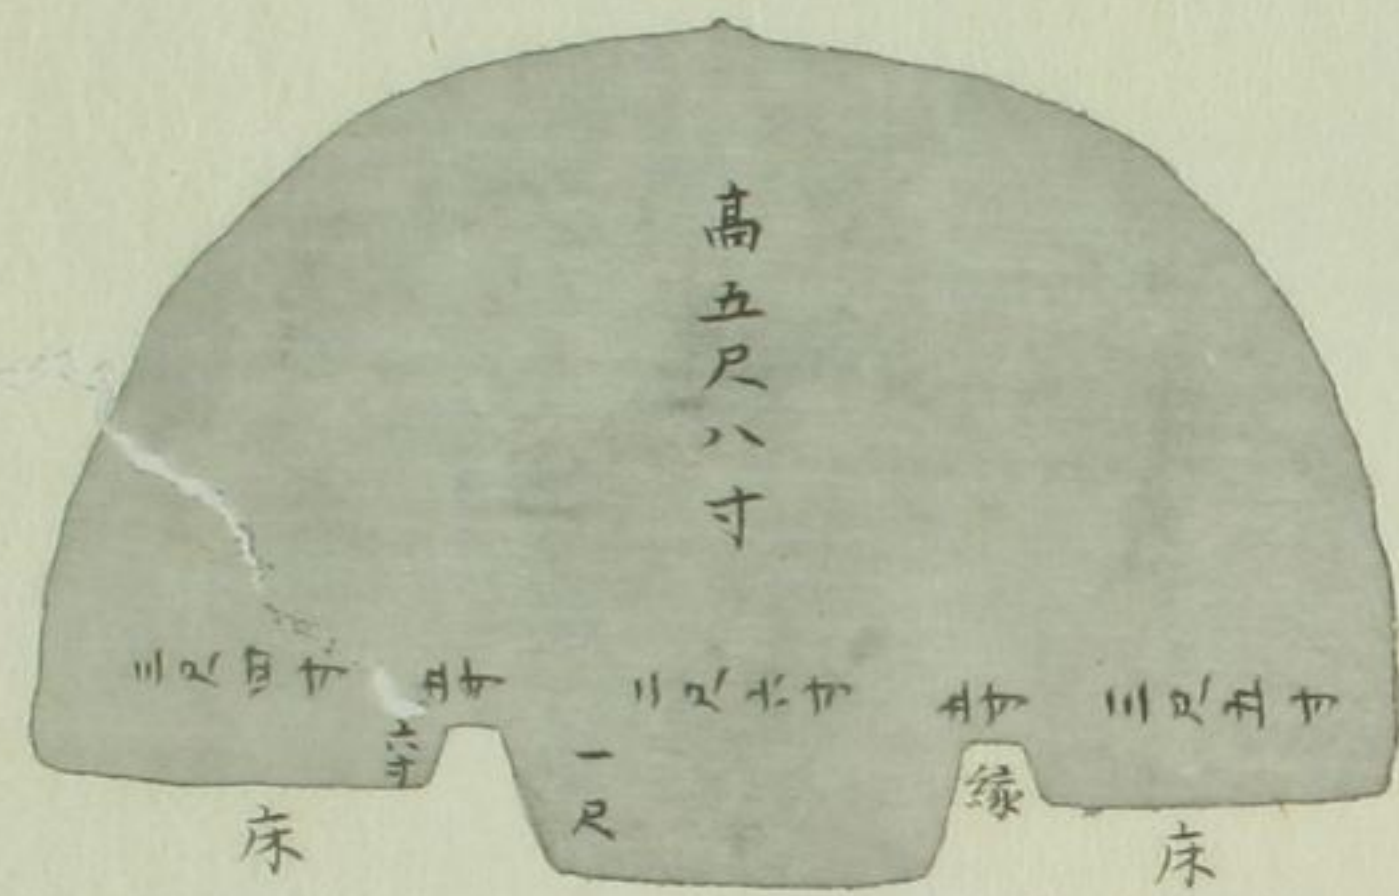 高五尺八寸
三尺四寸
五寸
二尺六寸
五寸
三尺五寸
六寸
一尺
縁
床
床